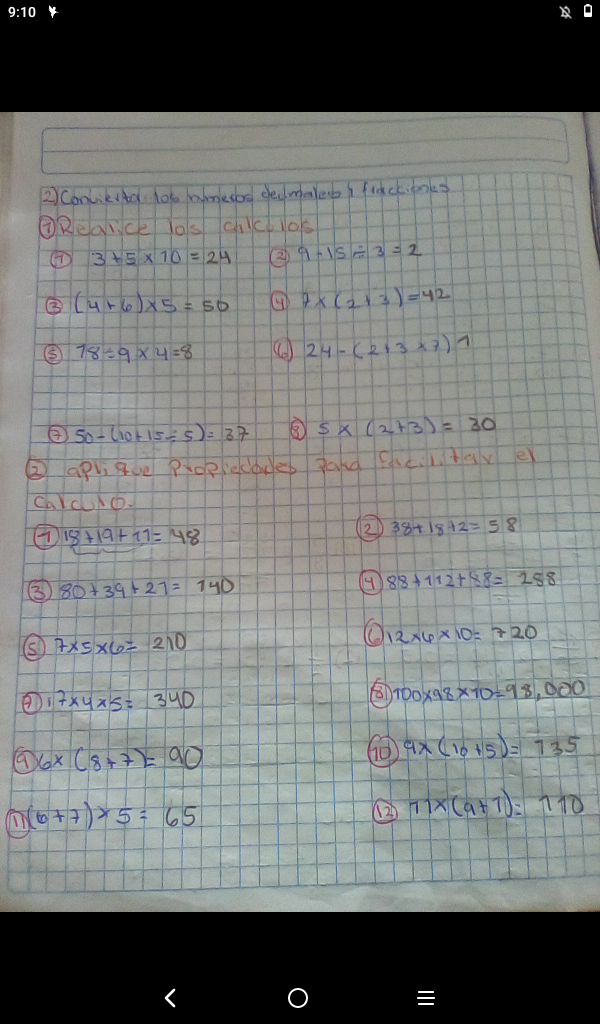 9:10
2) Convierta los numeros decimales y fracciones
① Realice los calculos
① 3+5×10 = 24 ② 9-15÷3=2
③ (4+6)×5 = 50 ④ 7×(2+3)=42
⑤ 18÷9×4=8 ⑥ 24-(2+3×7) 1
⑦ 50-(10+15÷5)= 37 ⑧ 5×(2+3)= 30
② aplique Propiedades para facilitar el
calculo.
① 18+19+11= 48 ② 38+18+2= 58
③ 80+39+21= 140 ④ 88+112+88= 288
⑤ 7×5×6= 210 ⑥ 12×6×10= 720
⑦ 17×4×5= 340 ⑧ 100×98×10=98,000
⑨ 6×(8+7)= 90 ⑩ 9×(10+5)= 135
⑪ (6+7)×5= 65 ⑫ 11×(9+1)= 110